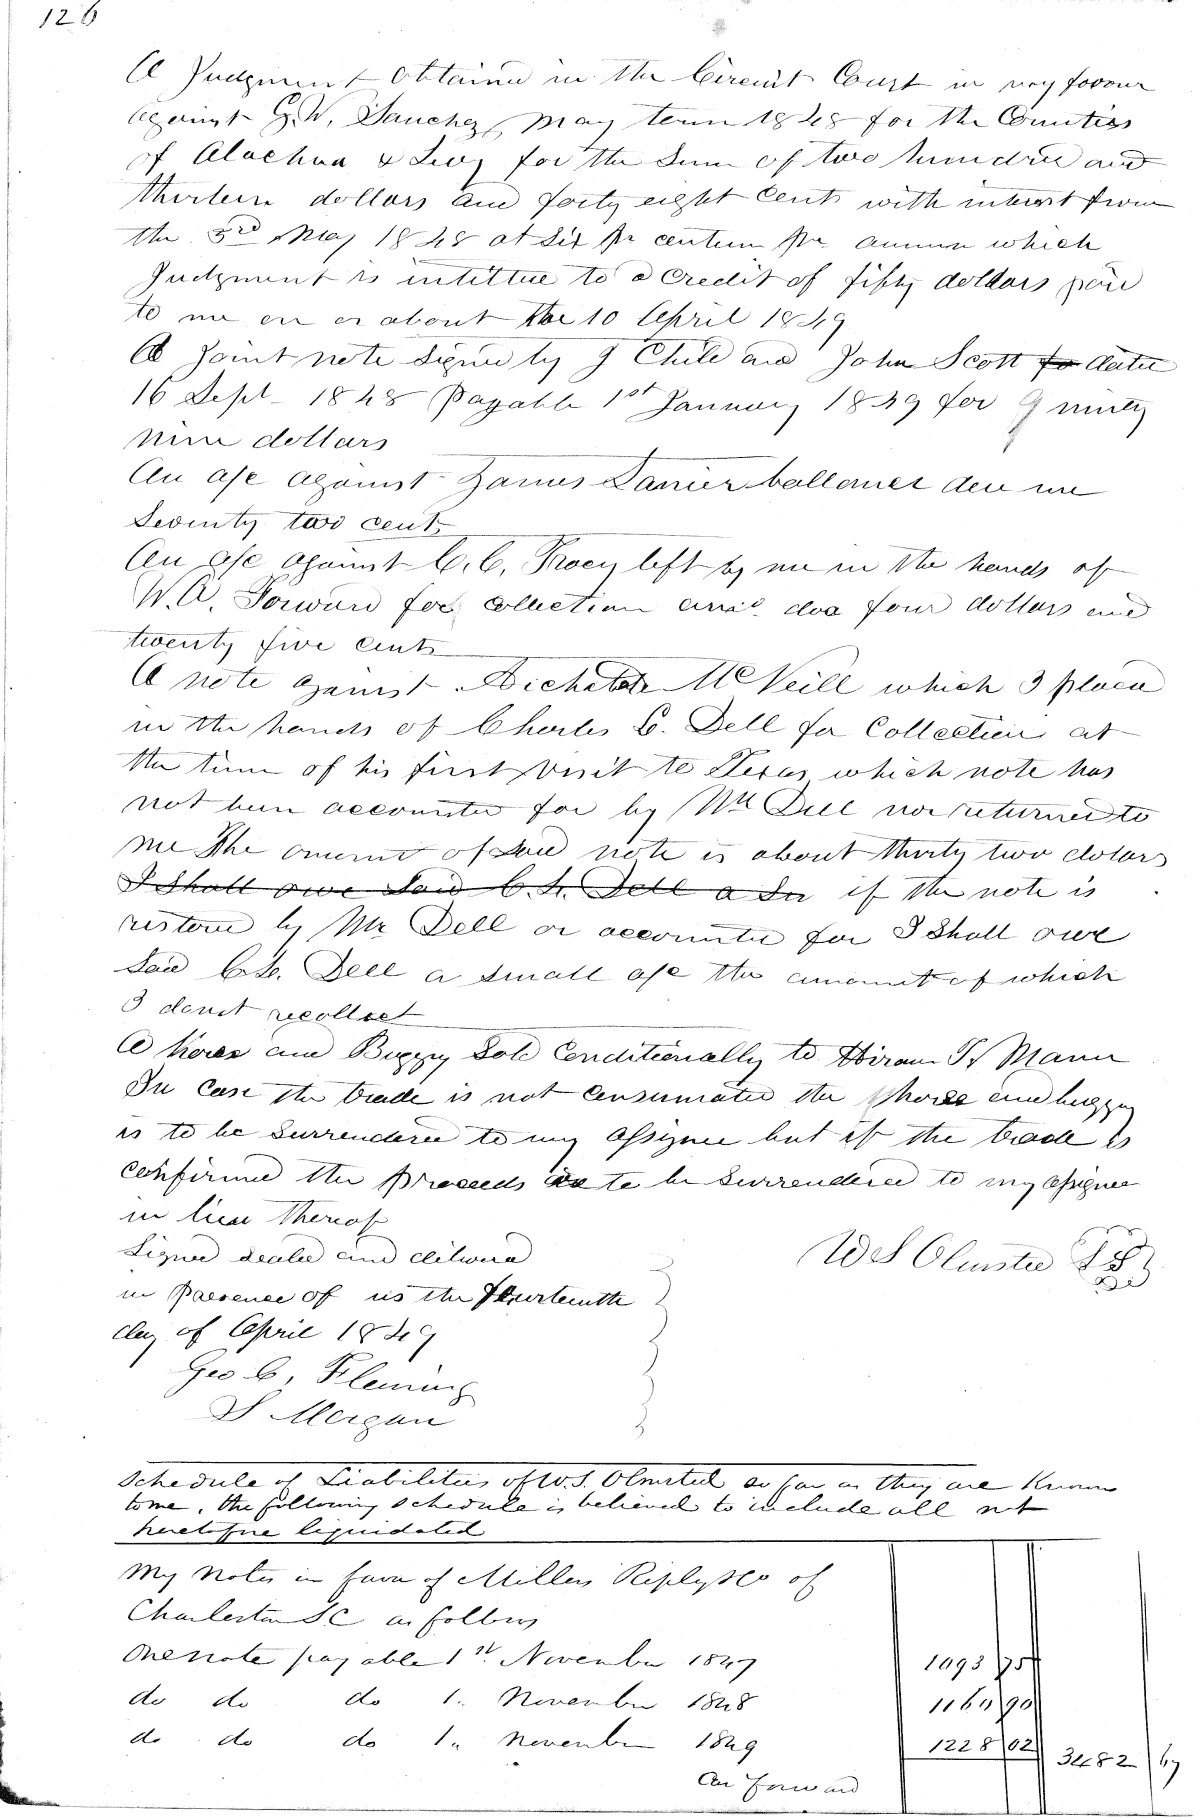 126
A Judgment obtained in the Circuit Court in my favour
against G.W. Sanchez, May term 1848 for the Counties
of Alachua & Levy for the Sum of two hundred and
thirteen dollars and forty eight Cents with interest from
the 3rd May 1848 at six pr centum pr annum which
Judgment is intitled to a credit of fifty dollars paid
to me on or about the 10 April 1849
A Joint note signed by J Child and John Scott fo dated
16 Sept 1848 Payable 1st January 1849 for 9 ninety
nine dollars
An a/c against James Lanier ballance due me
Seventy two cents
An a/c against C.C. Tracy left by me in the hands of
W.A. Forward for collection four dollars and
twenty five cents
A note against McNeill which I placed
in the hands of Charles L. Dell for Collection at
the time of his first visit to Texas which note has
not been accounted for by Mr Dell nor returned to
me The amount of said note is about thirty two dolars
I Shall owe Said C.L. Dell a Sm if the note is
restored by Mr Dell or accounted for I Shall owe
Said C.L. Dell a small a/c the amount of which
I donst recollect
A horse and Buggy Sold Conditionally to Hiram T. Mann
In Case the trade is not consumated the horse and buggy
is to be Surrendered to my assignee but if the trade is
confirmed the proceeds is to be Surrendered to my assignee
in lieu thereof
Signed sealed and delivered
W S Olmsted L S
in Presence of us the fourteenth
day of April 1849
Geo C, Fleming
S Morgan
Schedule of Liabilities of W.S. Olmsted so far as they are Known
to me, the following schedule is believed to include all not
heretofore liquidated
My Notes in favor of Millers Ripley & Co of
Charleston S C as follows
One note payable 1st November 1847 1093 75
do do do 1.. November 1848 1160 90
do do do 1.. November 1849 1228 02 3482 67
Car Forward